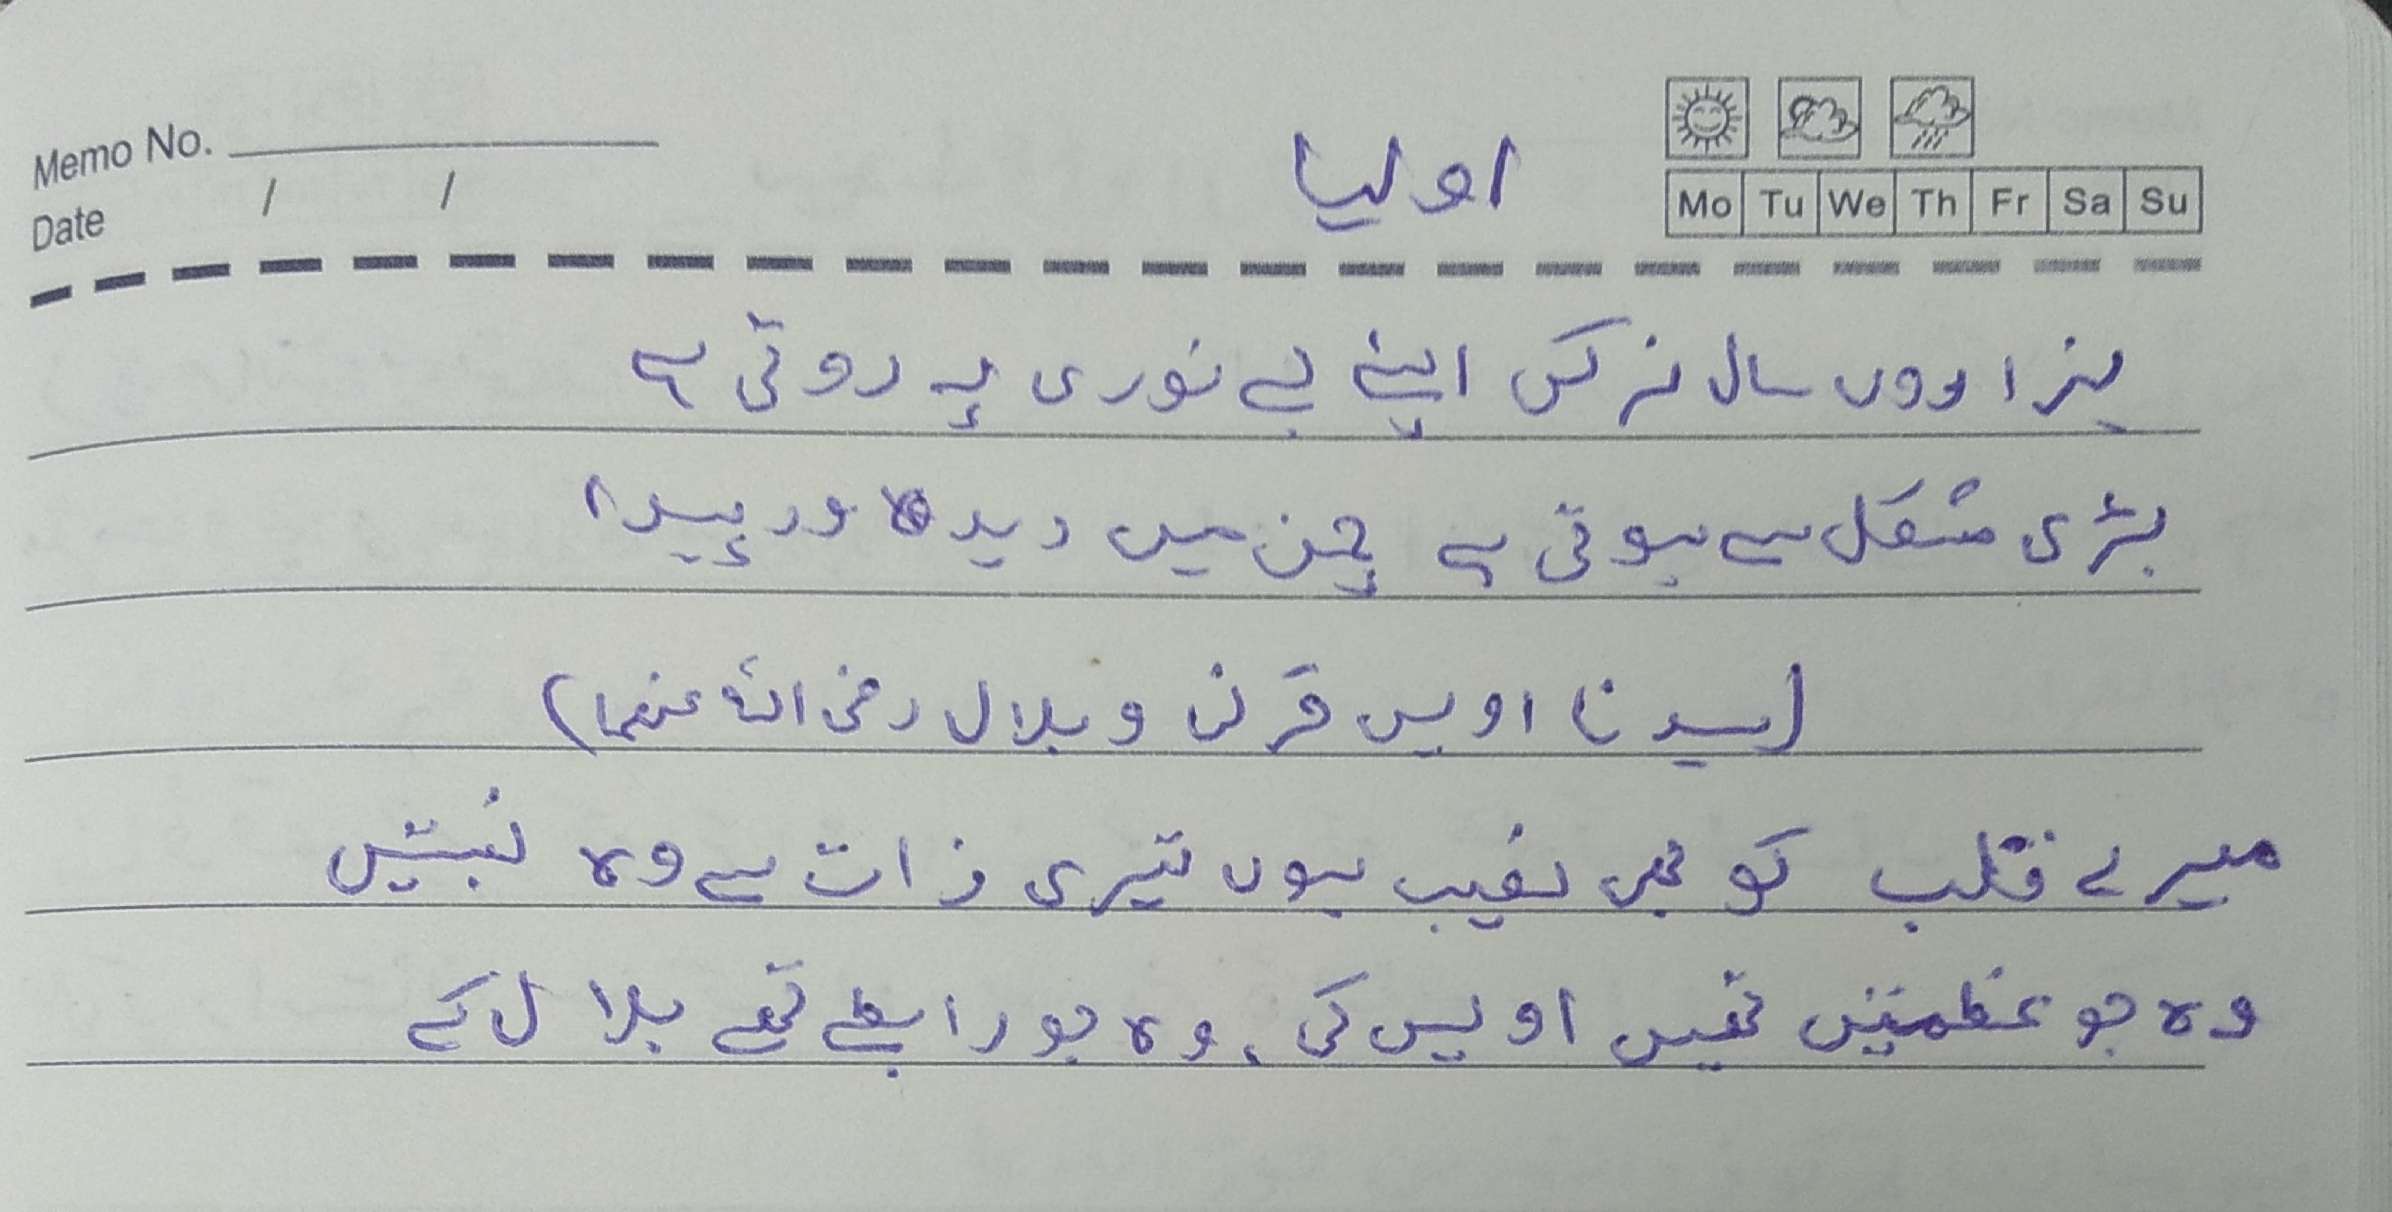 Memo No.
Date / /
اولیا
Mo Tu We Th Fr Sa Su
ہزاروں سال نرگس اپنے بے نوری پہ روتی ہے
بڑی مشکل سے ہوتی ہے چمن میں دیدہ ور پیدا
(سیدنا اویس قرنی و بلال رضی اللہ عنھما)
میرے قلب کو بھی نصیب ہوں تیری ذات سے وہ نسبتیں
وہ جو عظمتیں تھیں اویس کی، وہ جو رابطے تھے بلال کے